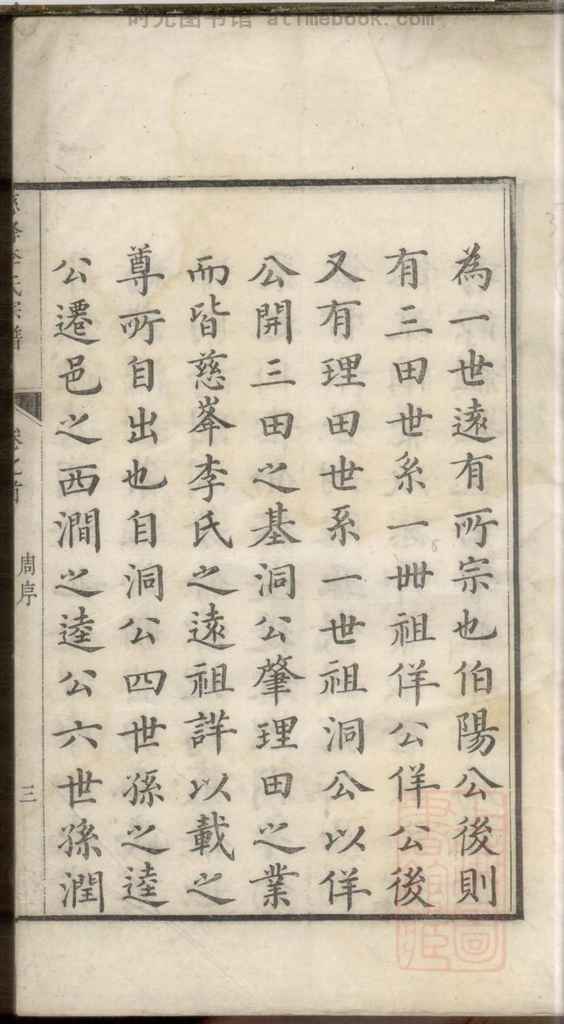 时光图书馆 atimebook.com
為一世遠有所宗也伯陽公後則
有三田世系一世祖佯公佯公後
又有理田世系一世祖洞公以佯
公開三田之基洞公肇理田之業
而皆慈峯李氏之遠祖詳以載之
尊所自出也自洞公四世孫之逵
公遷邑之西澗之逵公六世孫潤
李氏宗譜
卷之首
周序
三